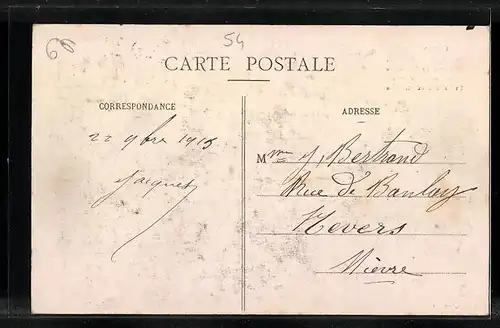 60
54
CARTE POSTALE
CORRESPONDANCE
ADRESSE
22 9bre 1915
Jacquet
Mme J, Bertrand
Rue de Banlay
Nevers
Nièvre